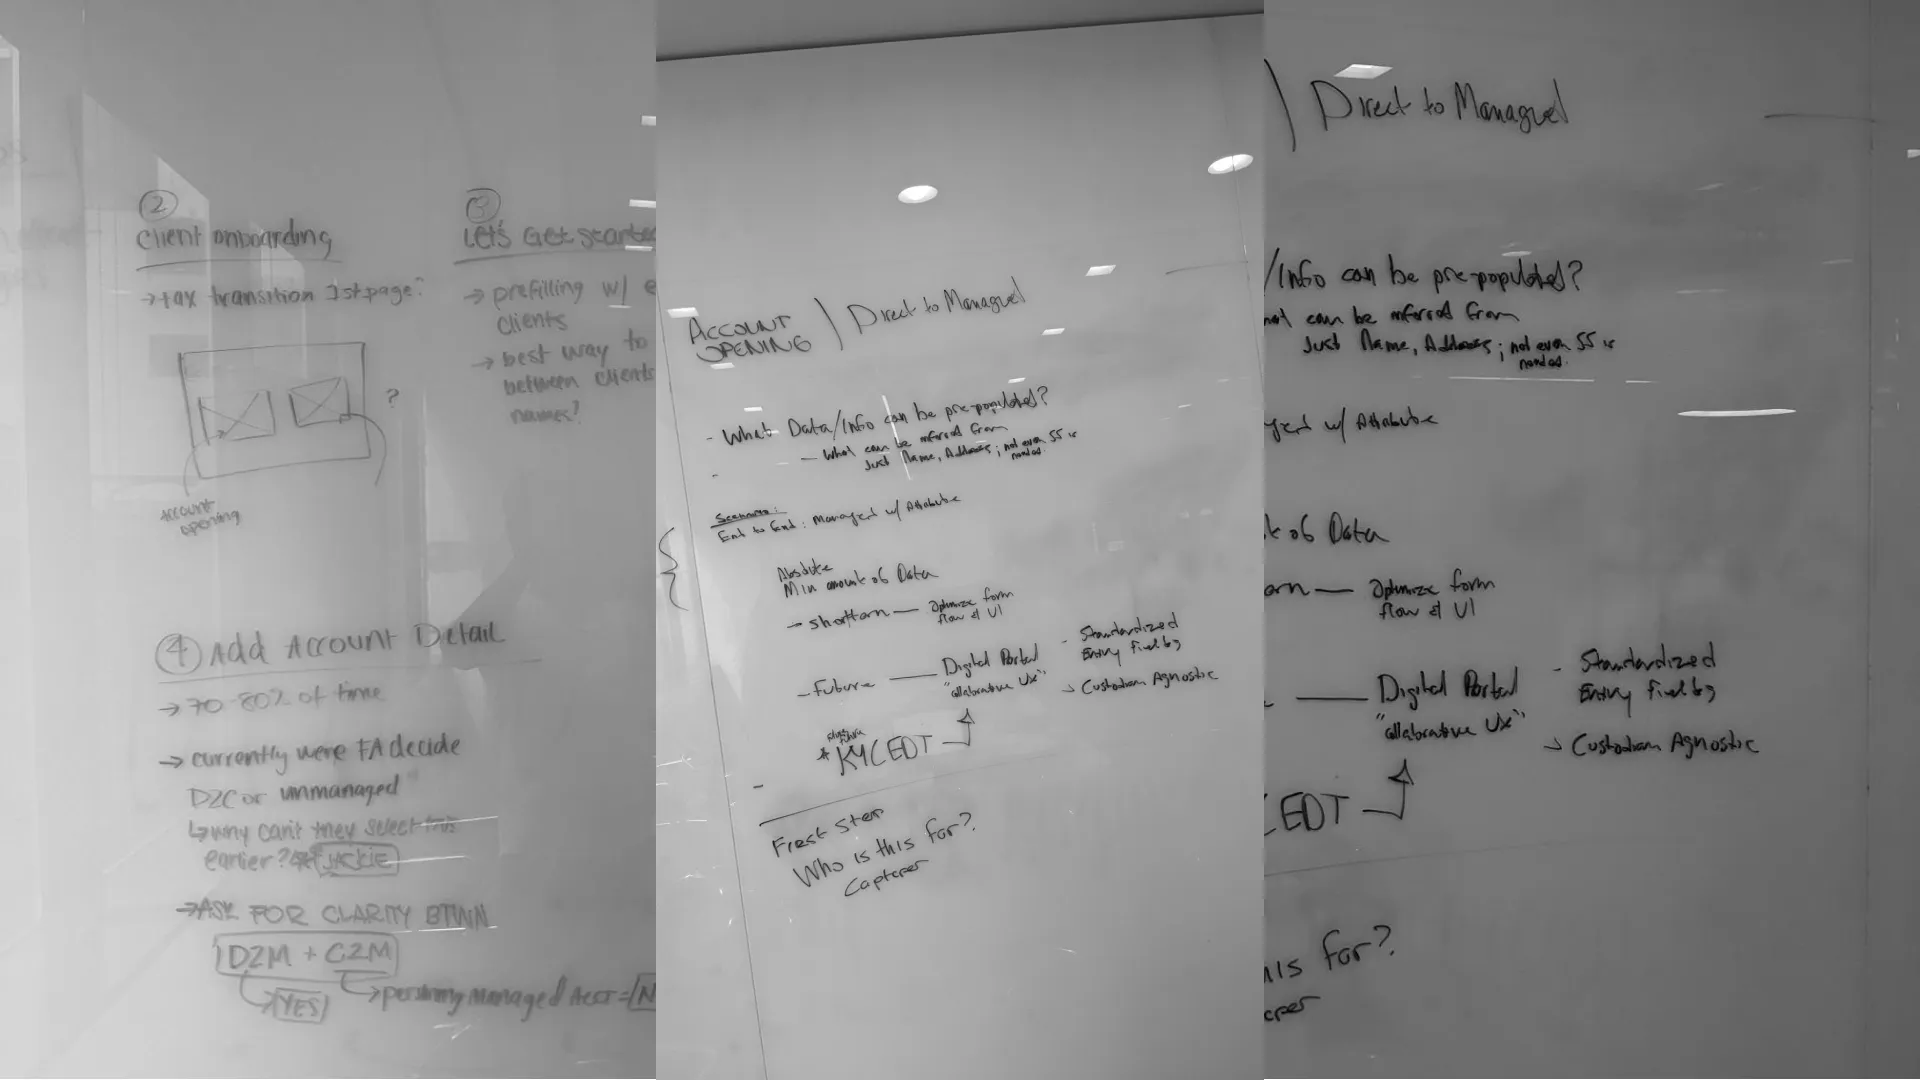 ②
Client onboarding
→ tax transition 1st page?
?
account
opening
③
Let's Get starte
→ prefilling w/ e
clients
→ best way to
between clients
names?
④ Add Account Detail
→ 70-80% of time
→ currently were FA decide
D2C or unmanaged
↳ why can't they select this
earlier? JACKIE
→ ASK FOR CLARITY BTWN
D2M + C2M
→ YES
→ managed Acct = N
ACCOUNT
OPENING
Direct to Managed
- What Data/Info can be pre-populated?
- What can be inferred from
Just Name, Address; not even SS is
needed.
-
Scenario:
End to End: Managed w/ Attribute
Absolute
Min amount of Data
- short term — Optimize form
flow & UI
- Future — Digital Portal
"collaborative UX"
- Standardized
Entry fields
→ Custodian Agnostic
* KYCEDT
-
First Step
Who is this for?
Direct to Managed
/Info can be pre-populated?
can be inferred from
Just Name, Address; not even SS is
needed.
w/ Attribute
of Data
— Optimize form
flow & UI
— Digital Portal
"collaborative UX"
- Standardized
Entry fields
→ Custodian Agnostic
CEDT
his for?